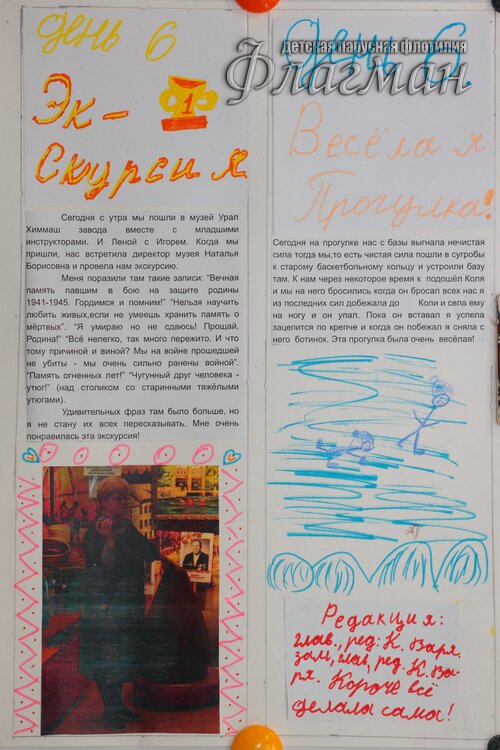 день 6
Эк-
1
скурсия
Сегодня с утра мы пошли в музей Урал
Химмаш завода вместе с младшими
инструкторами. И Леной с Игорем. Когда мы
пришли, нас встретила директор музея Наталья
Борисовна и провела нам экскурсию.
Меня поразили там такие записи: "Вечная
память павшим в бою на защите родины
1941-1945. Гордимся и помним!" "Нельзя научить
любить живых,если не умеешь хранить память о
мёртвых". "Я умираю но не сдаюсь! Прощай,
Родина!" "Всё нелегко, так много пережито. И что
тому причиной и виной? Мы на войне прошедшей
не убиты - мы очень сильно ранены войной".
"Память огненных лет!" "Чугунный друг человека -
утюг!" (над столиком со старинными тяжёлыми
утюгами).
Удивительных фраз там было больше, но
я не стану их всех пересказывать. Мне очень
понравилась эта экскурсия!
детская парусная флотилия
Флагман
День 6.
Весёлая
Прогулка!
Сегодня на прогулке нас с базы выгнала нечистая
сила тогда мы,то есть чистая сила пошли в сугробы
к старому баскетбольному кольцу и устроили базу
там. К нам через некоторое время к подошёл Коля
и мы на него бросились когда он бросал всех нас я
из последних сил добежала до Коли и села ему
на ногу и он упал. Пока он вставал я успела
зацепится по крепче и когда он побежал я сняла с
него ботинок. Эта прогулка была очень весёлая!
Редакция:
глав., ред: К. Варя.
зам, глав, ред. К. Ва-
ря. Короче всё
делала сама!